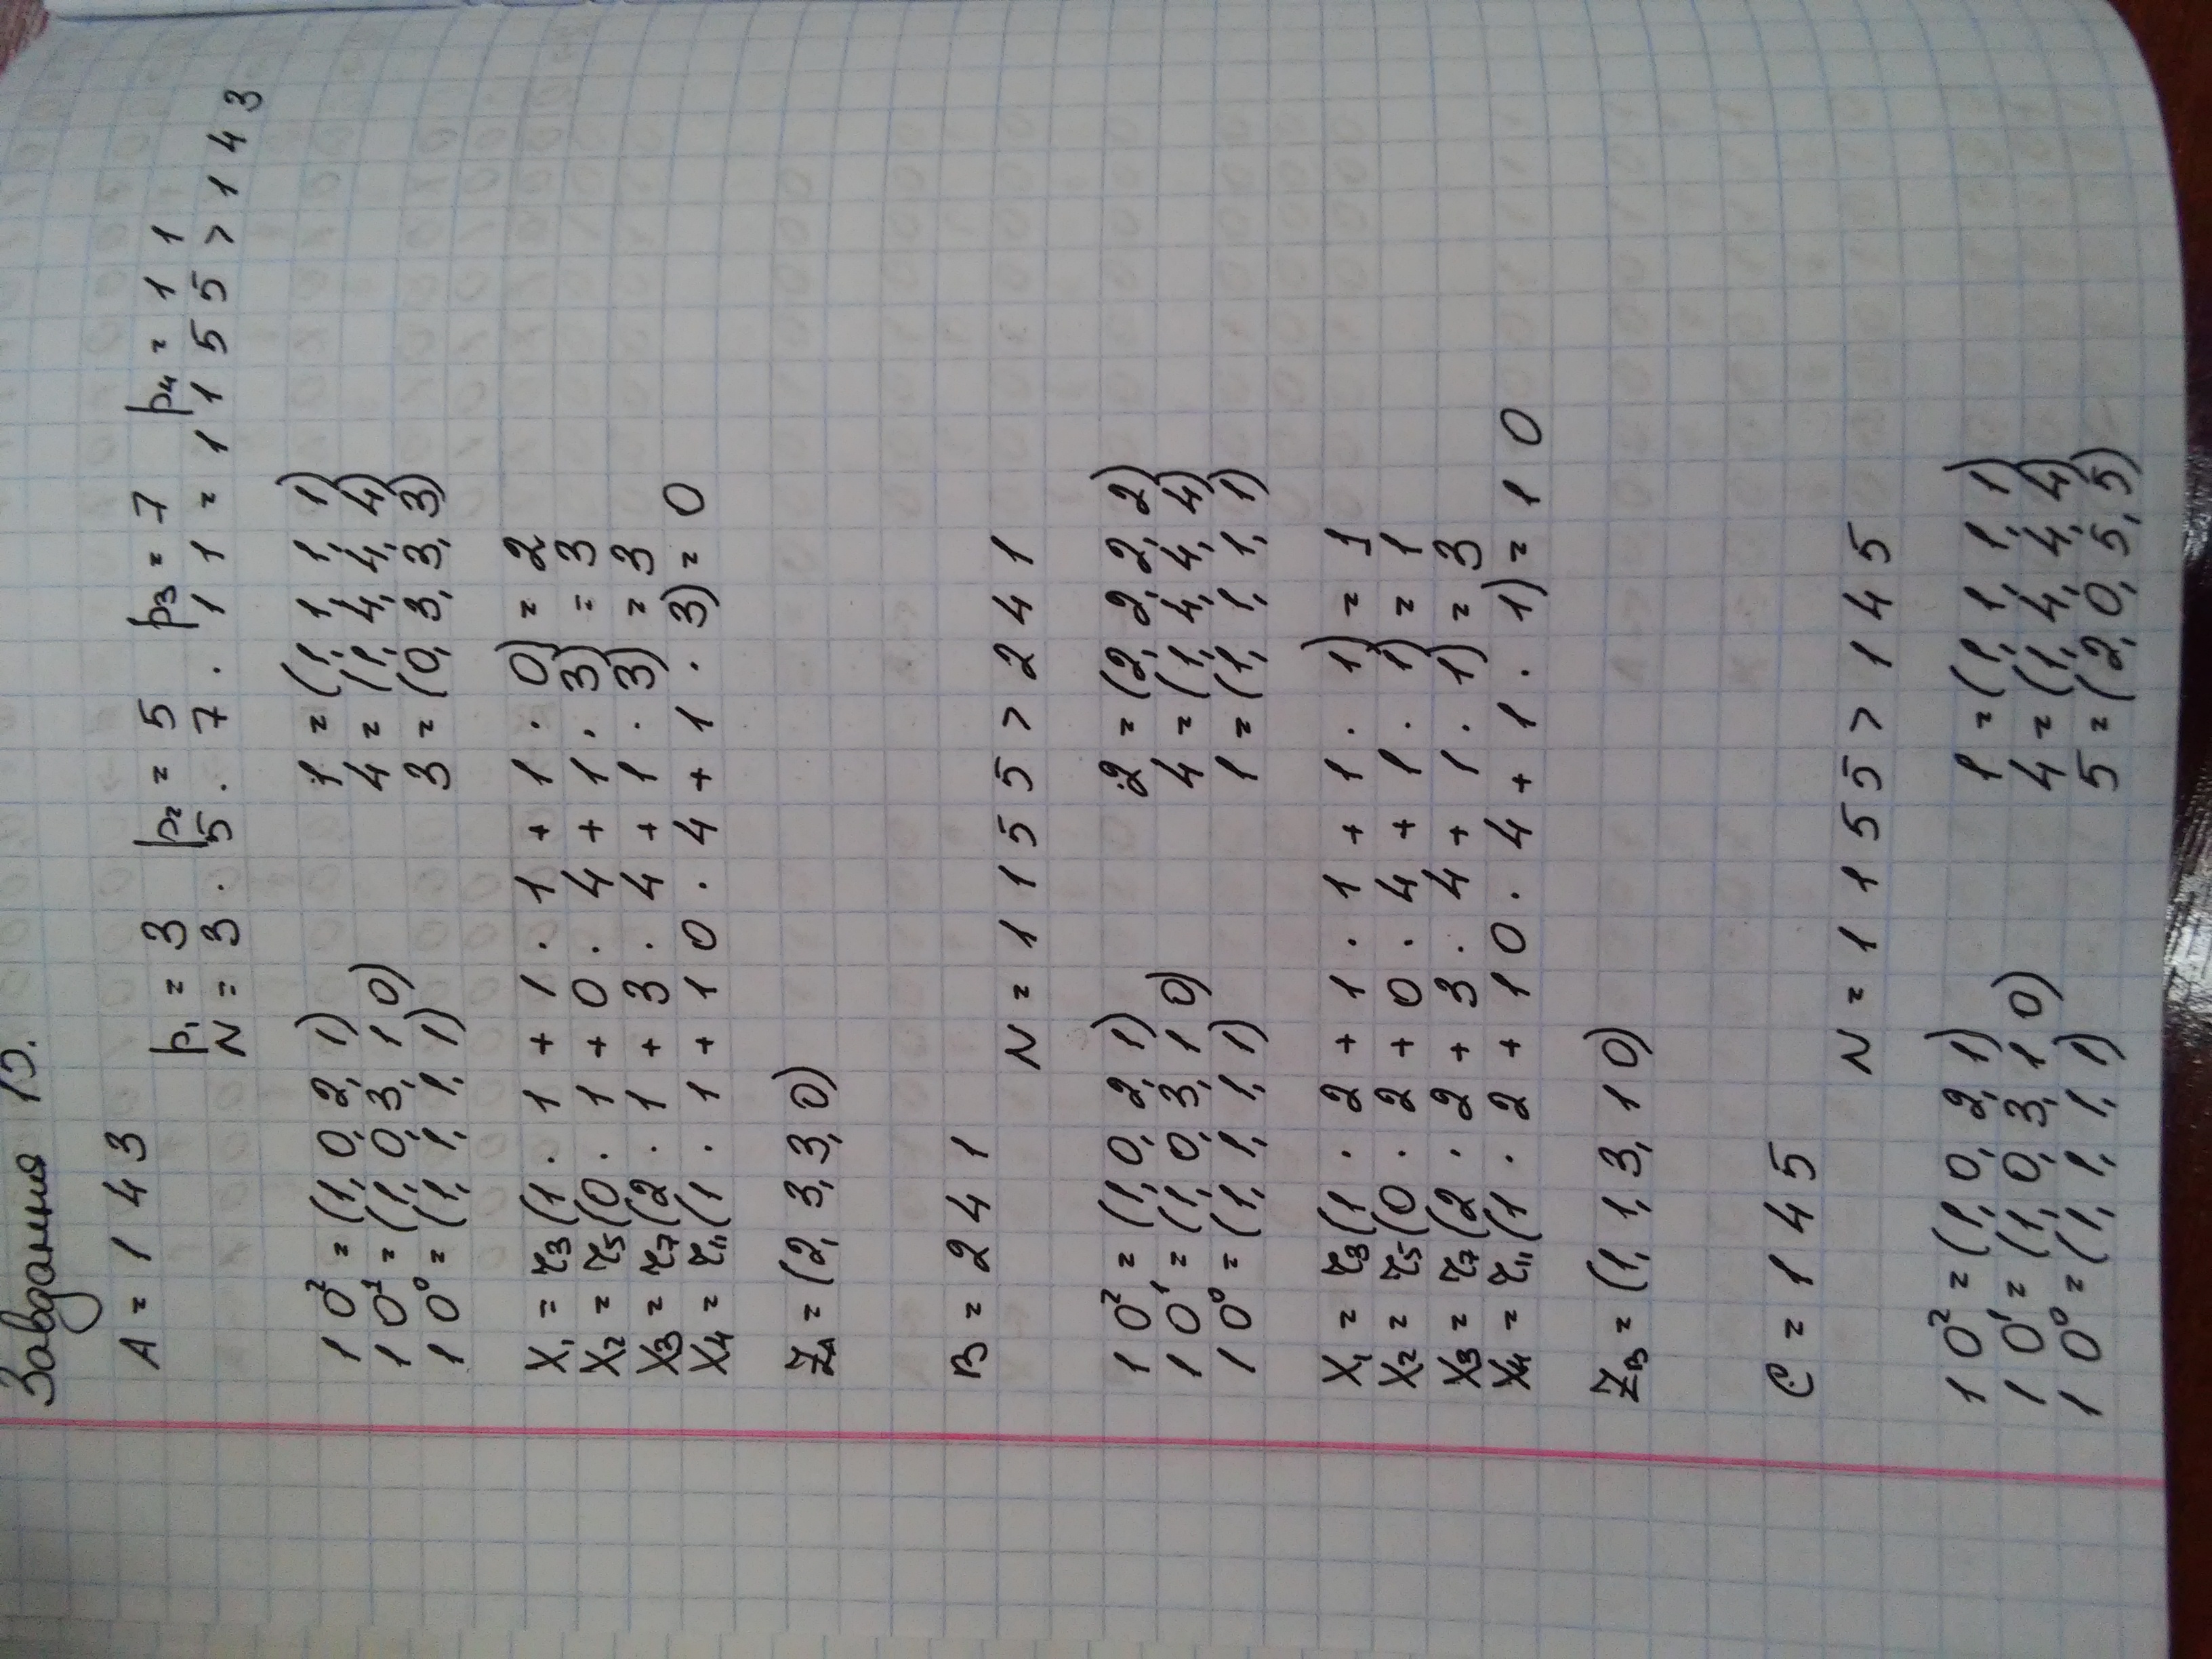 Завдання 15.
A = 143
p₁ = 3 p₂ = 5 p₃ = 7 p₄ = 11
N = 3 · 5 · 7 · 11 = 1155 > 143
10² = (1, 0, 2, 1) 1 = (1, 1, 1, 1)
10¹ = (1, 0, 3, 10) 4 = (1, 4, 4, 4)
10⁰ = (1, 1, 1, 1) 3 = (0, 3, 3, 3)
X₁ = r₃(1 · 1 + 1 · 1 + 1 · 0) = 2
X₂ = r₅(0 · 1 + 0 · 4 + 1 · 3) = 3
X₃ = r₇(2 · 1 + 3 · 4 + 1 · 3) = 3
X₄ = r₁₁(1 · 1 + 10 · 4 + 1 · 3) = 0
Z_A = (2, 3, 3, 0)
B = 241
N = 1155 > 241
10² = (1, 0, 2, 1) 2 = (2, 2, 2, 2)
10¹ = (1, 0, 3, 10) 4 = (1, 4, 4, 4)
10⁰ = (1, 1, 1, 1) 1 = (1, 1, 1, 1)
X₁ = r₃(1 · 2 + 1 · 1 + 1 · 1) = 1
X₂ = r₅(0 · 2 + 0 · 4 + 1 · 1) = 1
X₃ = r₇(2 · 2 + 3 · 4 + 1 · 1) = 3
X₄ = r₁₁(1 · 2 + 10 · 4 + 1 · 1) = 10
Z_B = (1, 1, 3, 10)
C = 145
N = 1155 > 145
10² = (1, 0, 2, 1) 1 = (1, 1, 1, 1)
10¹ = (1, 0, 3, 10) 4 = (1, 4, 4, 4)
10⁰ = (1, 1, 1, 1) 5 = (2, 0, 5, 5)